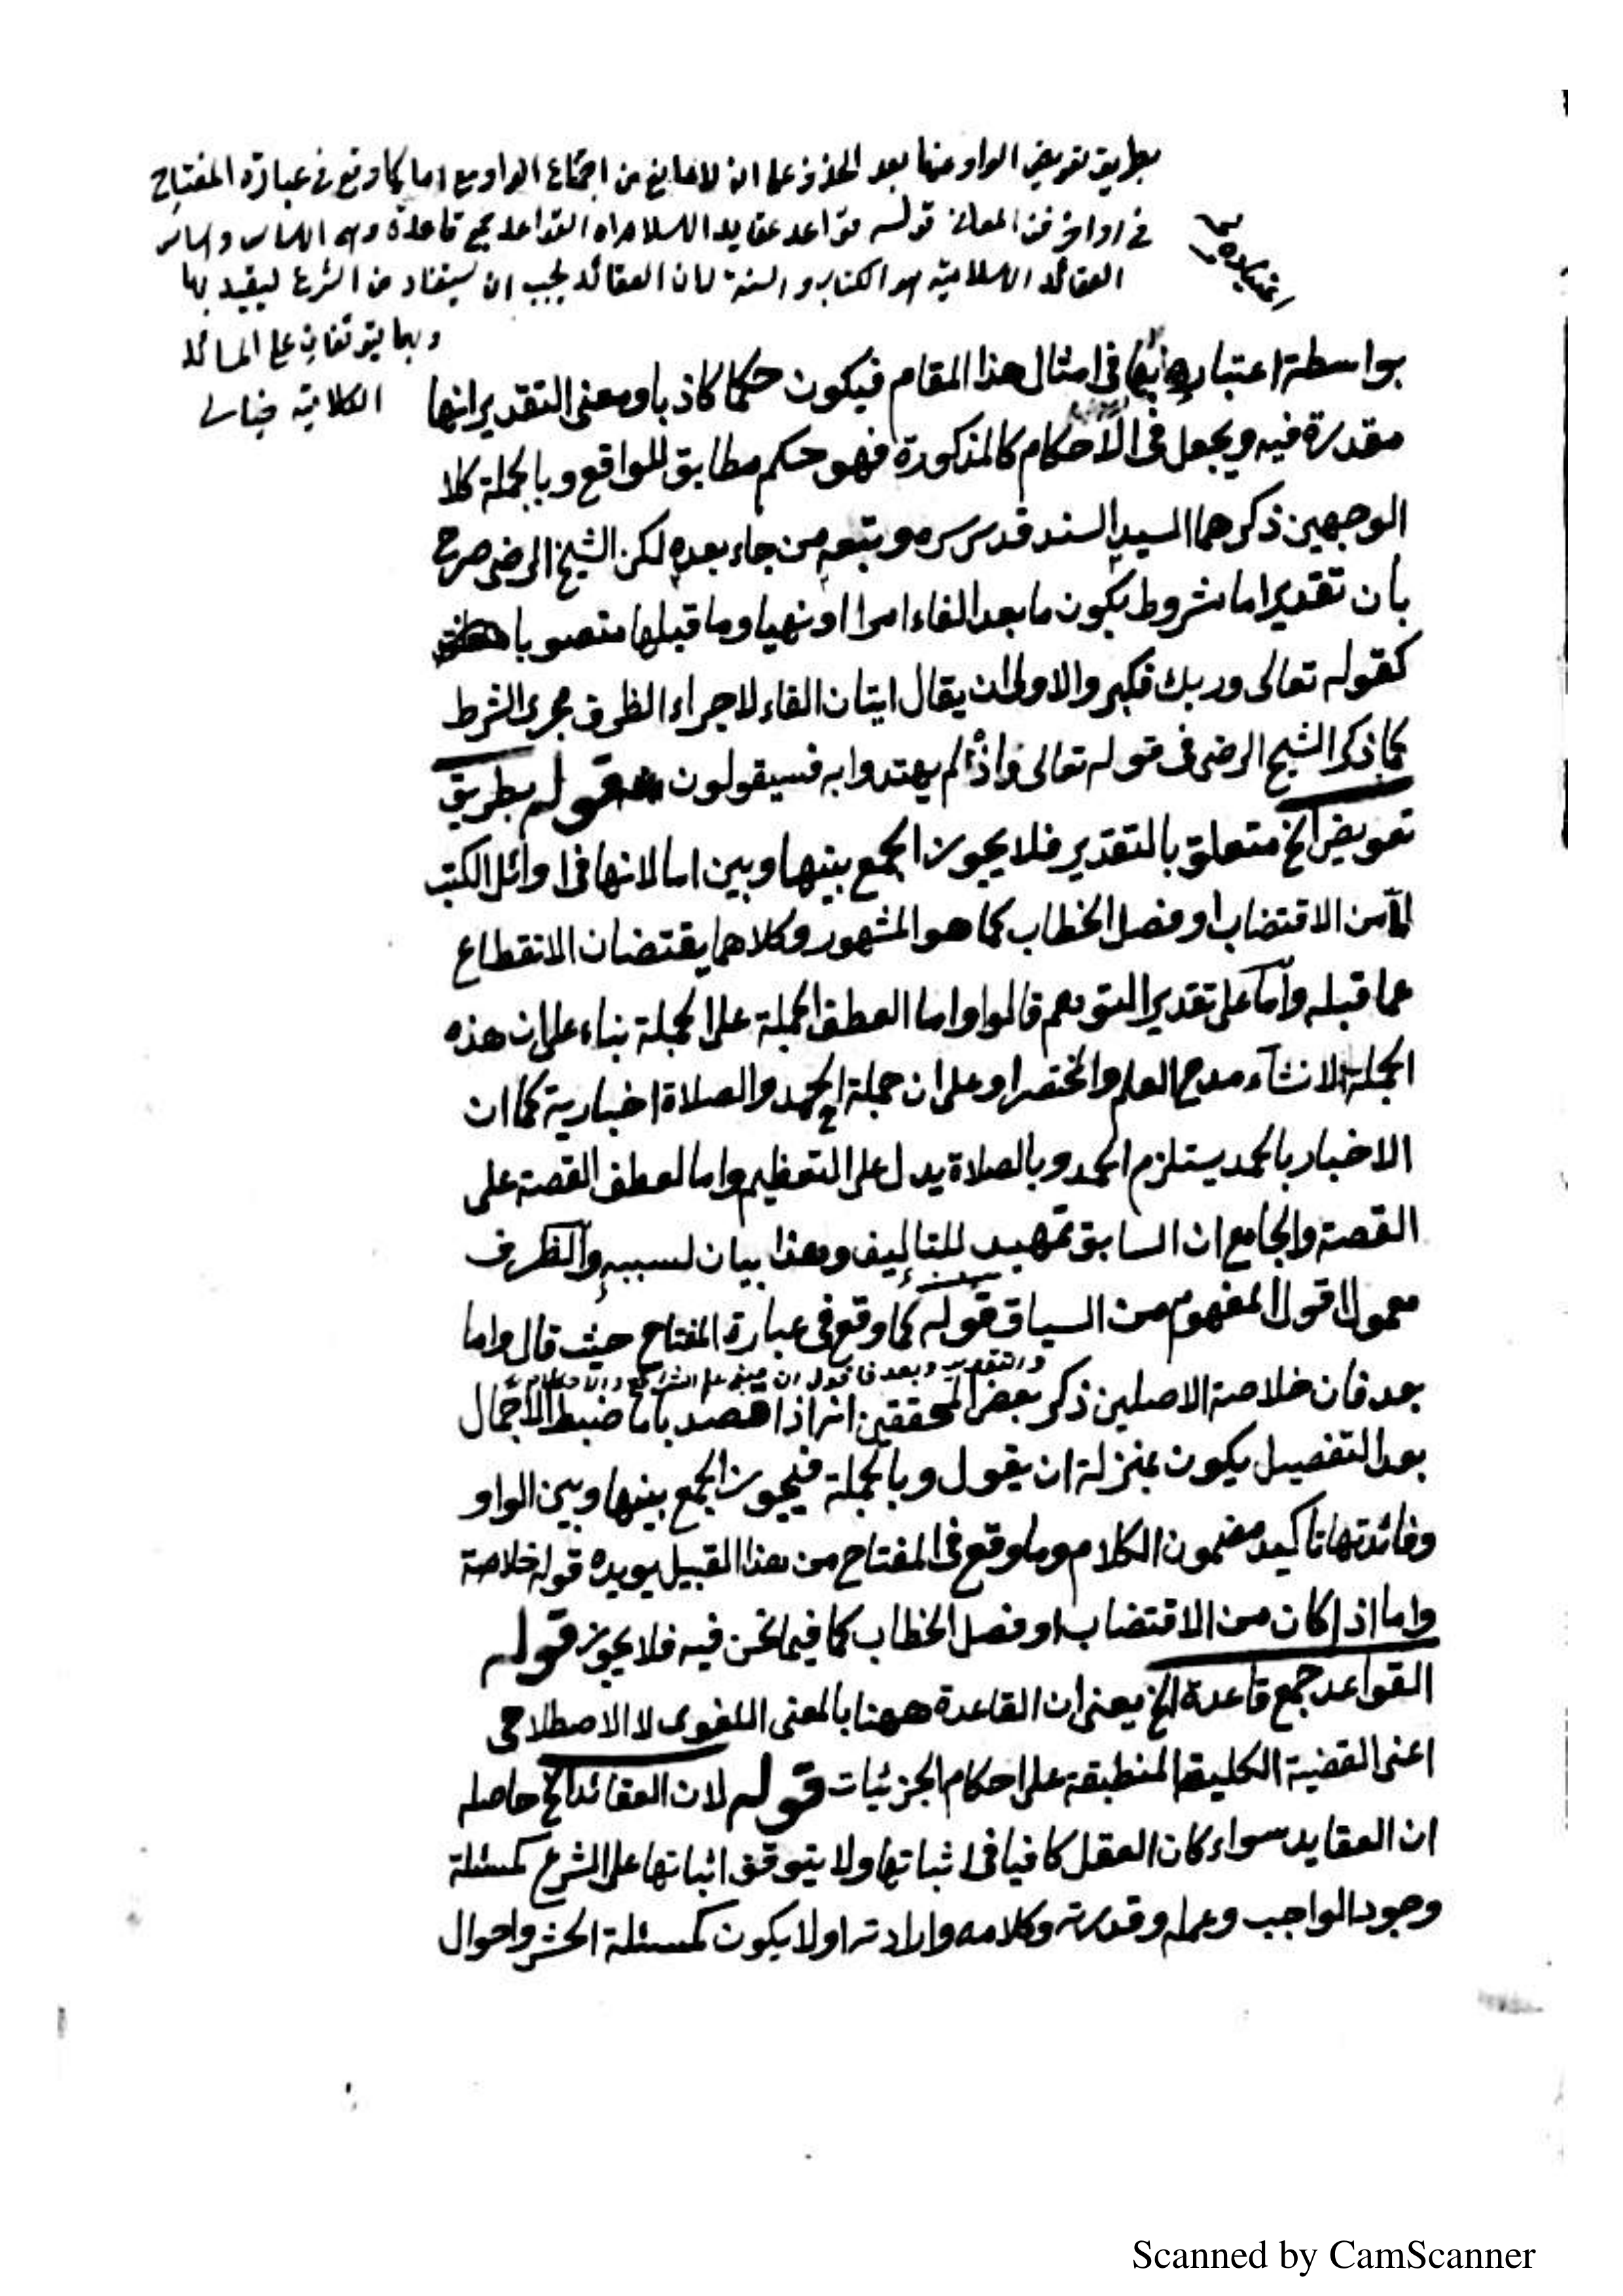 بطريق تعويض الواو عنها بعد الحذف على انه لا مانع من اجتماع الواو مع اما كما وقع في عبارة المفتاح
في اواخر فن المعاني قوله قواعد عقايد الاسلام القواعد جمع قاعدة وهي الاساس واساس
العقائد الاسلامية هو الكتاب والسنة لان العقائد يجب ان يستفاد من الشرع ليقيد بها
وبها يتوقفان على المسائل
الكلامية خيالي
بواسطة اعتبارها في امثال هذا المقام فيكون حكما كاذبا ومعنى التقدير انها
مقدرة فيه ويجعل في الاحكام كالمذكورة فهو حكم مطابق للواقع وبالجملة كلا
الوجهين ذكرهما السيد السند قدس سره وتبعه من جاء بعده لكن الشيخ الرضى صرح
بان تقدير اما مشروط بكون ما بعد الفاء امرا او نهيا وما قبلها منصوبا
كقوله تعالى وربك فكبر والاولى ان يقال ايتان الفاء لاجراء الظرف مجرى الشرط
كما ذكر الشيخ الرضى في قوله تعالى واذ لم يهتدوا به فسيقولون قوله بطريق
تعويض الخ متعلق بالتقدير فلا يجوز الجمع بينها وبين اما لانها في اوائل الكتب
اما من الاقتضاب او فصل الخطاب كما هو المشهور وكلاهما يقتضان الانقطاع
عما قبله واما على تقدير التوهم فالواو اما العطف الجملة على الجملة بناء على ان هذه
الجملة لانشاء مدح العلم والمختصر او على ان جملة الحمد والصلاة اخبارية كما ان
الاخبار بالحمد يستلزم الحمد وبالصلاة يدل على التعظيم واما لعطف القصة على
القصة والجامع ان السابق تمهيد للتاليف وهذا بيان لسببه والظرف
معمول اقول المفهوم من السياق قوله كما وقع في عبارة المفتاح حيث قال واما
بعد فان خلاصة الاصلين ذكر بعض المحققين انه اذا قصد باما ضبط الاجمال
بعد التفصيل يكون بمنزلة ان يقول وبالجملة فيجوز الجمع بينها وبين الواو
وفائدتها تاكيد مضمون الكلام وما وقع في المفتاح من هذا القبيل يويده قوله خلاصة
واما اذا كان من الاقتضاب او فصل الخطاب كما فيما نحن فيه فلا يجوز قوله
القواعد جمع قاعدة الخ يعنى ان القاعدة ههنا بالمعنى اللغوى لا الاصطلاحى
اعنى القضية الكلية المنطبقة على احكام الجزئيات قوله لان العقائد الخ حاصله
ان العقايد سواء كان العقل كافيا في اثباتها ولا يتوقف اثباتها على الشرع كمسئلة
وجود الواجب وعلمه وقدرته وكلامه وارادته او لا يكون كمسئلة الحشر واحوال
Scanned by CamScanner